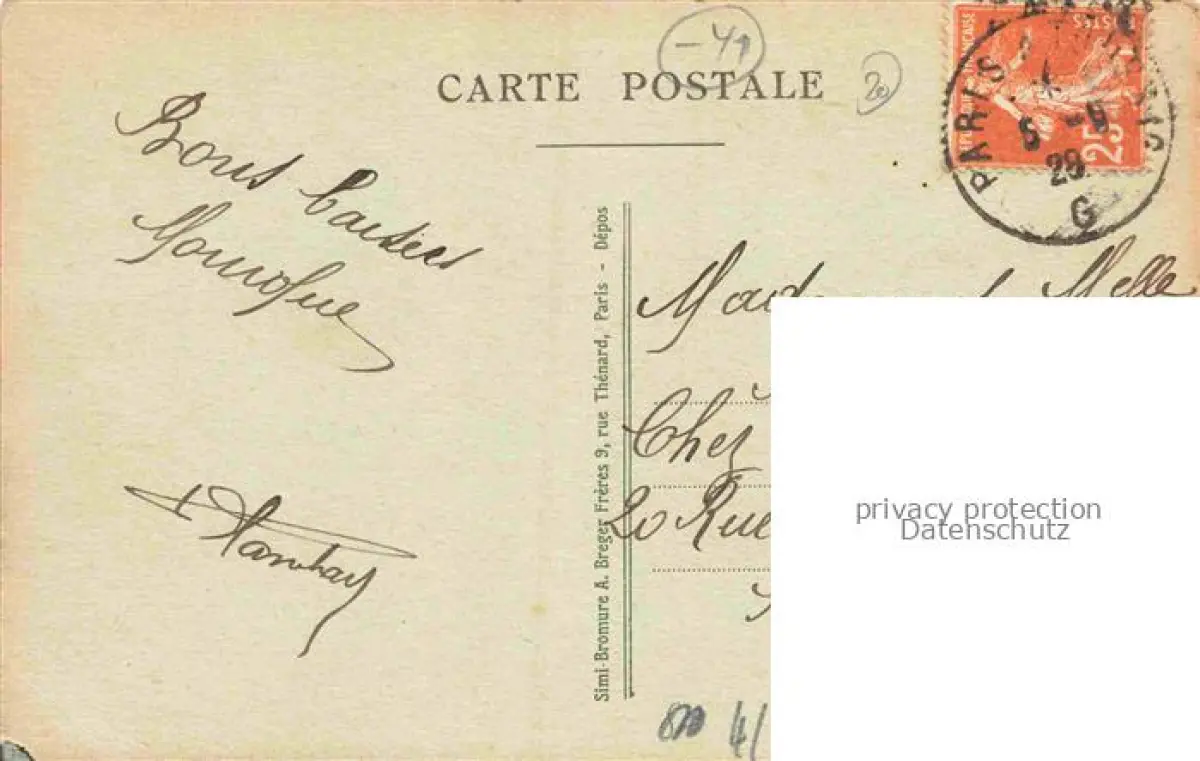 -41
CARTE POSTALE
20
PARIS
6 -9
29
G
POSTES
25
Bons baisers
Monique
Simi-Bromure A. Breger Frères 9, rue Thénard, Paris - Dépos
Melle
Chez
20 Rue
privacy protection
Datenschutz
41